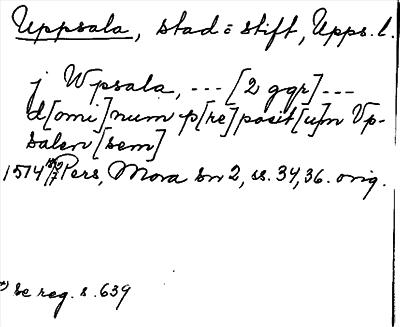 Uppsala, stad = stift, Upps. l.
j Wpsala, --- [2 ggr] ---
d[omi]num p[re]posit[u]m Vp-
salen[sem]
1514 Pers, Mora sn 2, ss. 34, 36. orig.
se reg. s. 639